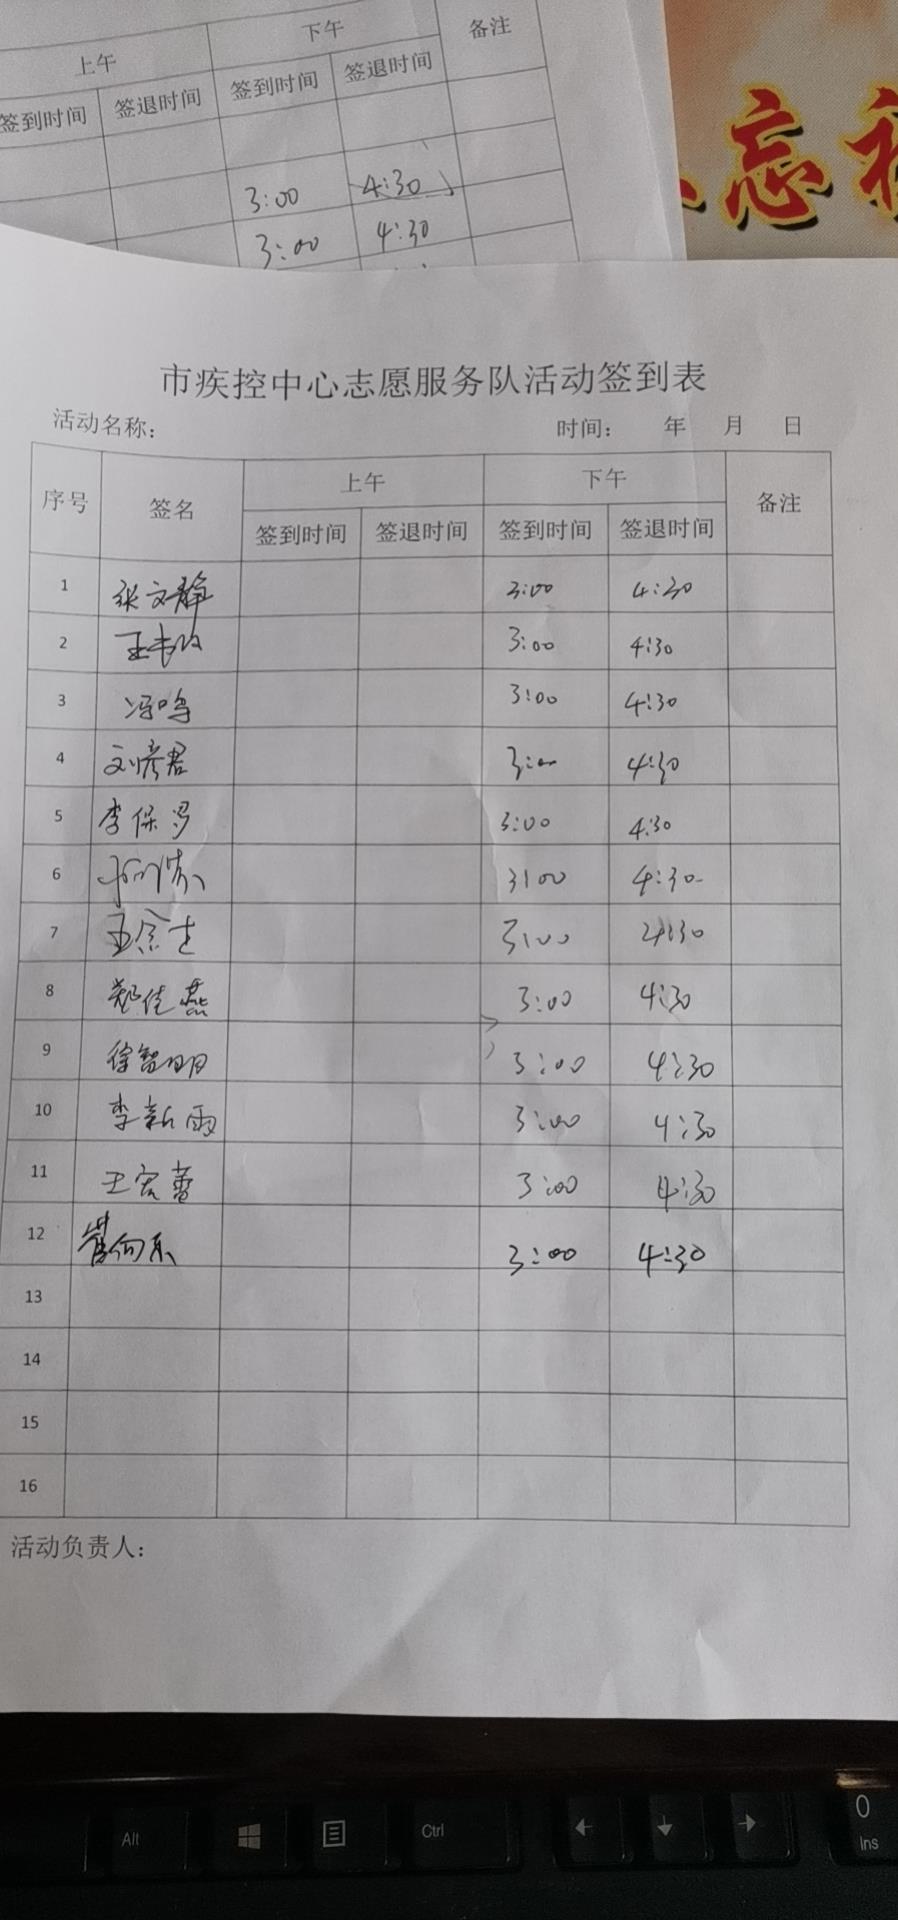 上午 下午 备注
签到时间 签退时间 签到时间 签退时间
3:00 4:30
3:00 4:30
忘
市疾控中心志愿服务队活动签到表
活动名称： 时间： 年 月 日
序号 签名 上午 下午 备注
签到时间 签退时间 签到时间 签退时间
1 张文静 3:00 4:30
2 3:00 4:30
3 冯鸣 3:00 4:30
4 刘彦君 3:00 4:30
5 李保罗 3:00 4:30
6 3:00 4:30
7 3:00 4:30
8 郑佳燕 3:00 4:30
9 徐智明 3:00 4:30
10 李新雨 3:00 4:30
11 王宏蕾 3:00 4:30
12 3:00 4:30
13
14
15
16
活动负责人：
Alt Ctrl 0
Ins